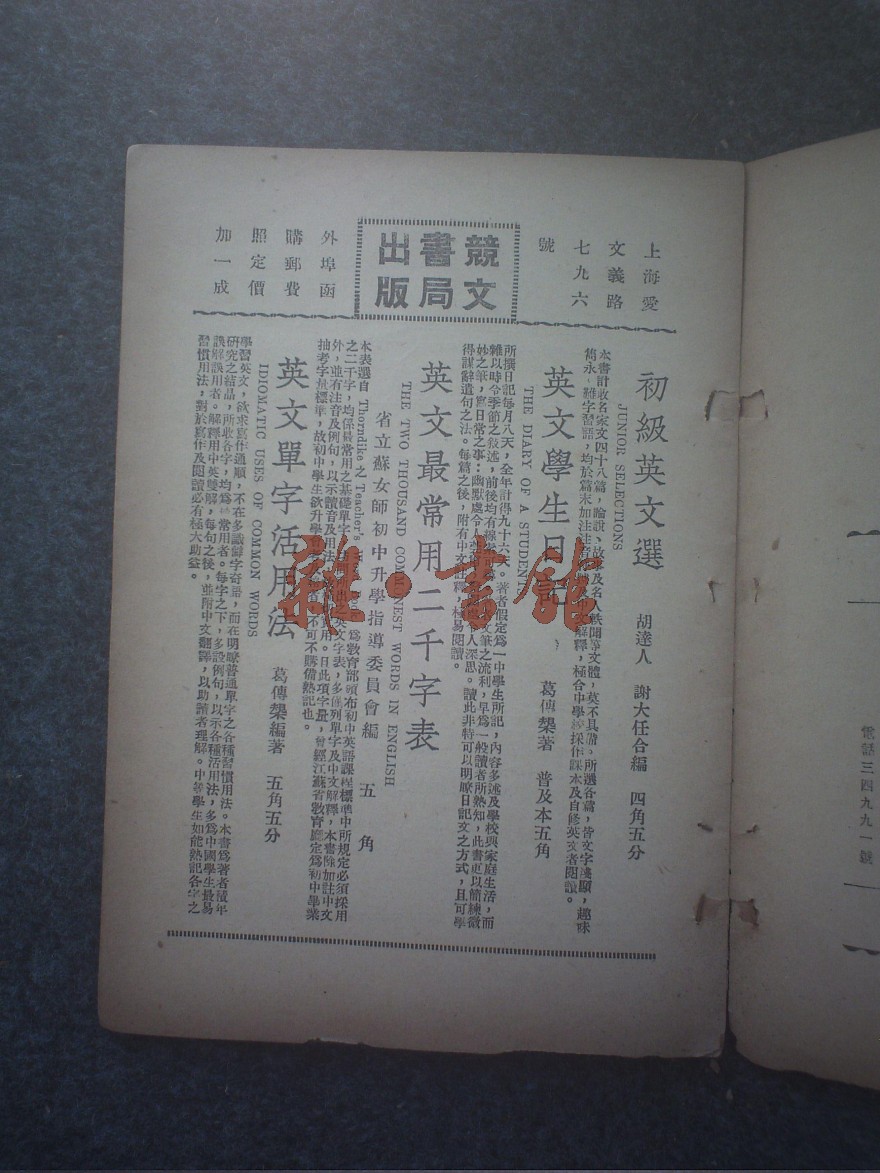 上海愛
文義路
七九六
號
競文
書局
出版
外埠函
購郵費
照定價
加一成
初級英文選 胡達人 謝大任合編 四角五分
JUNIOR SELECTIONS
本書計收名家文四十八篇,論說、故事及名人軼聞等文體,莫不具備。所選各篇,皆文字淺顯,趣味
雋永。難字習語,均於篇末加注注音 解釋,極合中學 採作課本及自修英文者閱讀。
英文學生日記 葛傳槼著 普及本五角
THE DIARY OF A STUDENT
所撰日記每月八天,全年計得九十六天。著者假定為一中學生所記,內容多述及學校與家庭生活,而
雜以時令季節之敘述,前後均有線索 筆之流利,早為一般讀者所熟知,此書更以簡練微
妙之筆,寫日常之事:幽默處令人 人深思。讀此非特可以明瞭日記文之方式,且可學
得謀辭遣句之法。每篇之後,附有中文註釋,極易閱讀。
英文最常用二千字表
THE TWO THOUSAND COMMONEST WORDS IN ENGLISH
省立蘇女師初中升學指導委員會編 五角
本表選自 Thorndike 之 Teacher's Book 為教育部頒布初中英語課程標準中所規定必須採用
之二千字,均係最常用之基礎單字 出 英文字表,多僅列單字及中文解釋,本書除加註中文
外,並有注音及例句,以示讀音及用法 用。因此項字量,曾經江蘇省教育廳定為初中畢業
抽考字量標準,故初中學生欲升學 不可不購備熟記也。
英文單字活用法 葛傳槼編著 五角五分
IDIOMATIC USES OF COMMON WORDS
學習英文,欲求寫作通順,不在多識鮮字奇語,而在明瞭普通單字之各種習慣用法。本書為著者積年
研究之結晶,所收各字,均為 常用者。每字之下,多設例句,以示各種活用法,多為中國學生最易
誤解誤用者。解釋用中英雙解,每句之後,並附中文翻譯,以助讀者理解。中等學生如能熟記各字之
習慣用法,對於寫作及閱讀必有極大助益。
電話三四九九一號
雜·書館